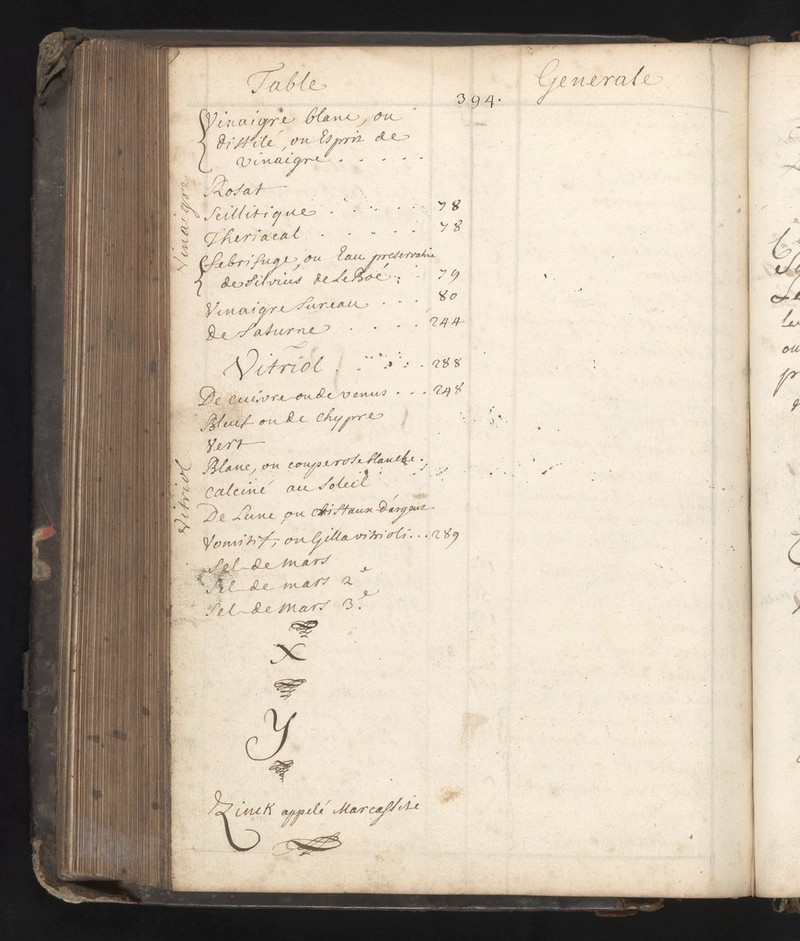 Table
394.
Generale
Vinaigre
Vinaigre blanc, ou
distilé, ou Esprit de
vinaigre . . . . .
Rosat
Scillitique . . . . . 78
Theriacal . . . . . 78
Febrifuge, ou Eau preservative
de Silvius de Le Boé . . 79
Vinaigre Sureau . . . 80
De Saturne . . . . 244
Vitriol
Vitriol . . . . . 288
De cuivre ou de venus . . . 248
Bleuet ou de chypre
Vert
Blanc, ou couperose blanche .
calciné au Soleil
De Lune ou christaux d'argent
Vomitif, ou Gilla vitrioli . . . 289
Sel de mars
Sel de mars 2e
Sel de mars 3.e
X
Y
Zinck appelé Marcassite